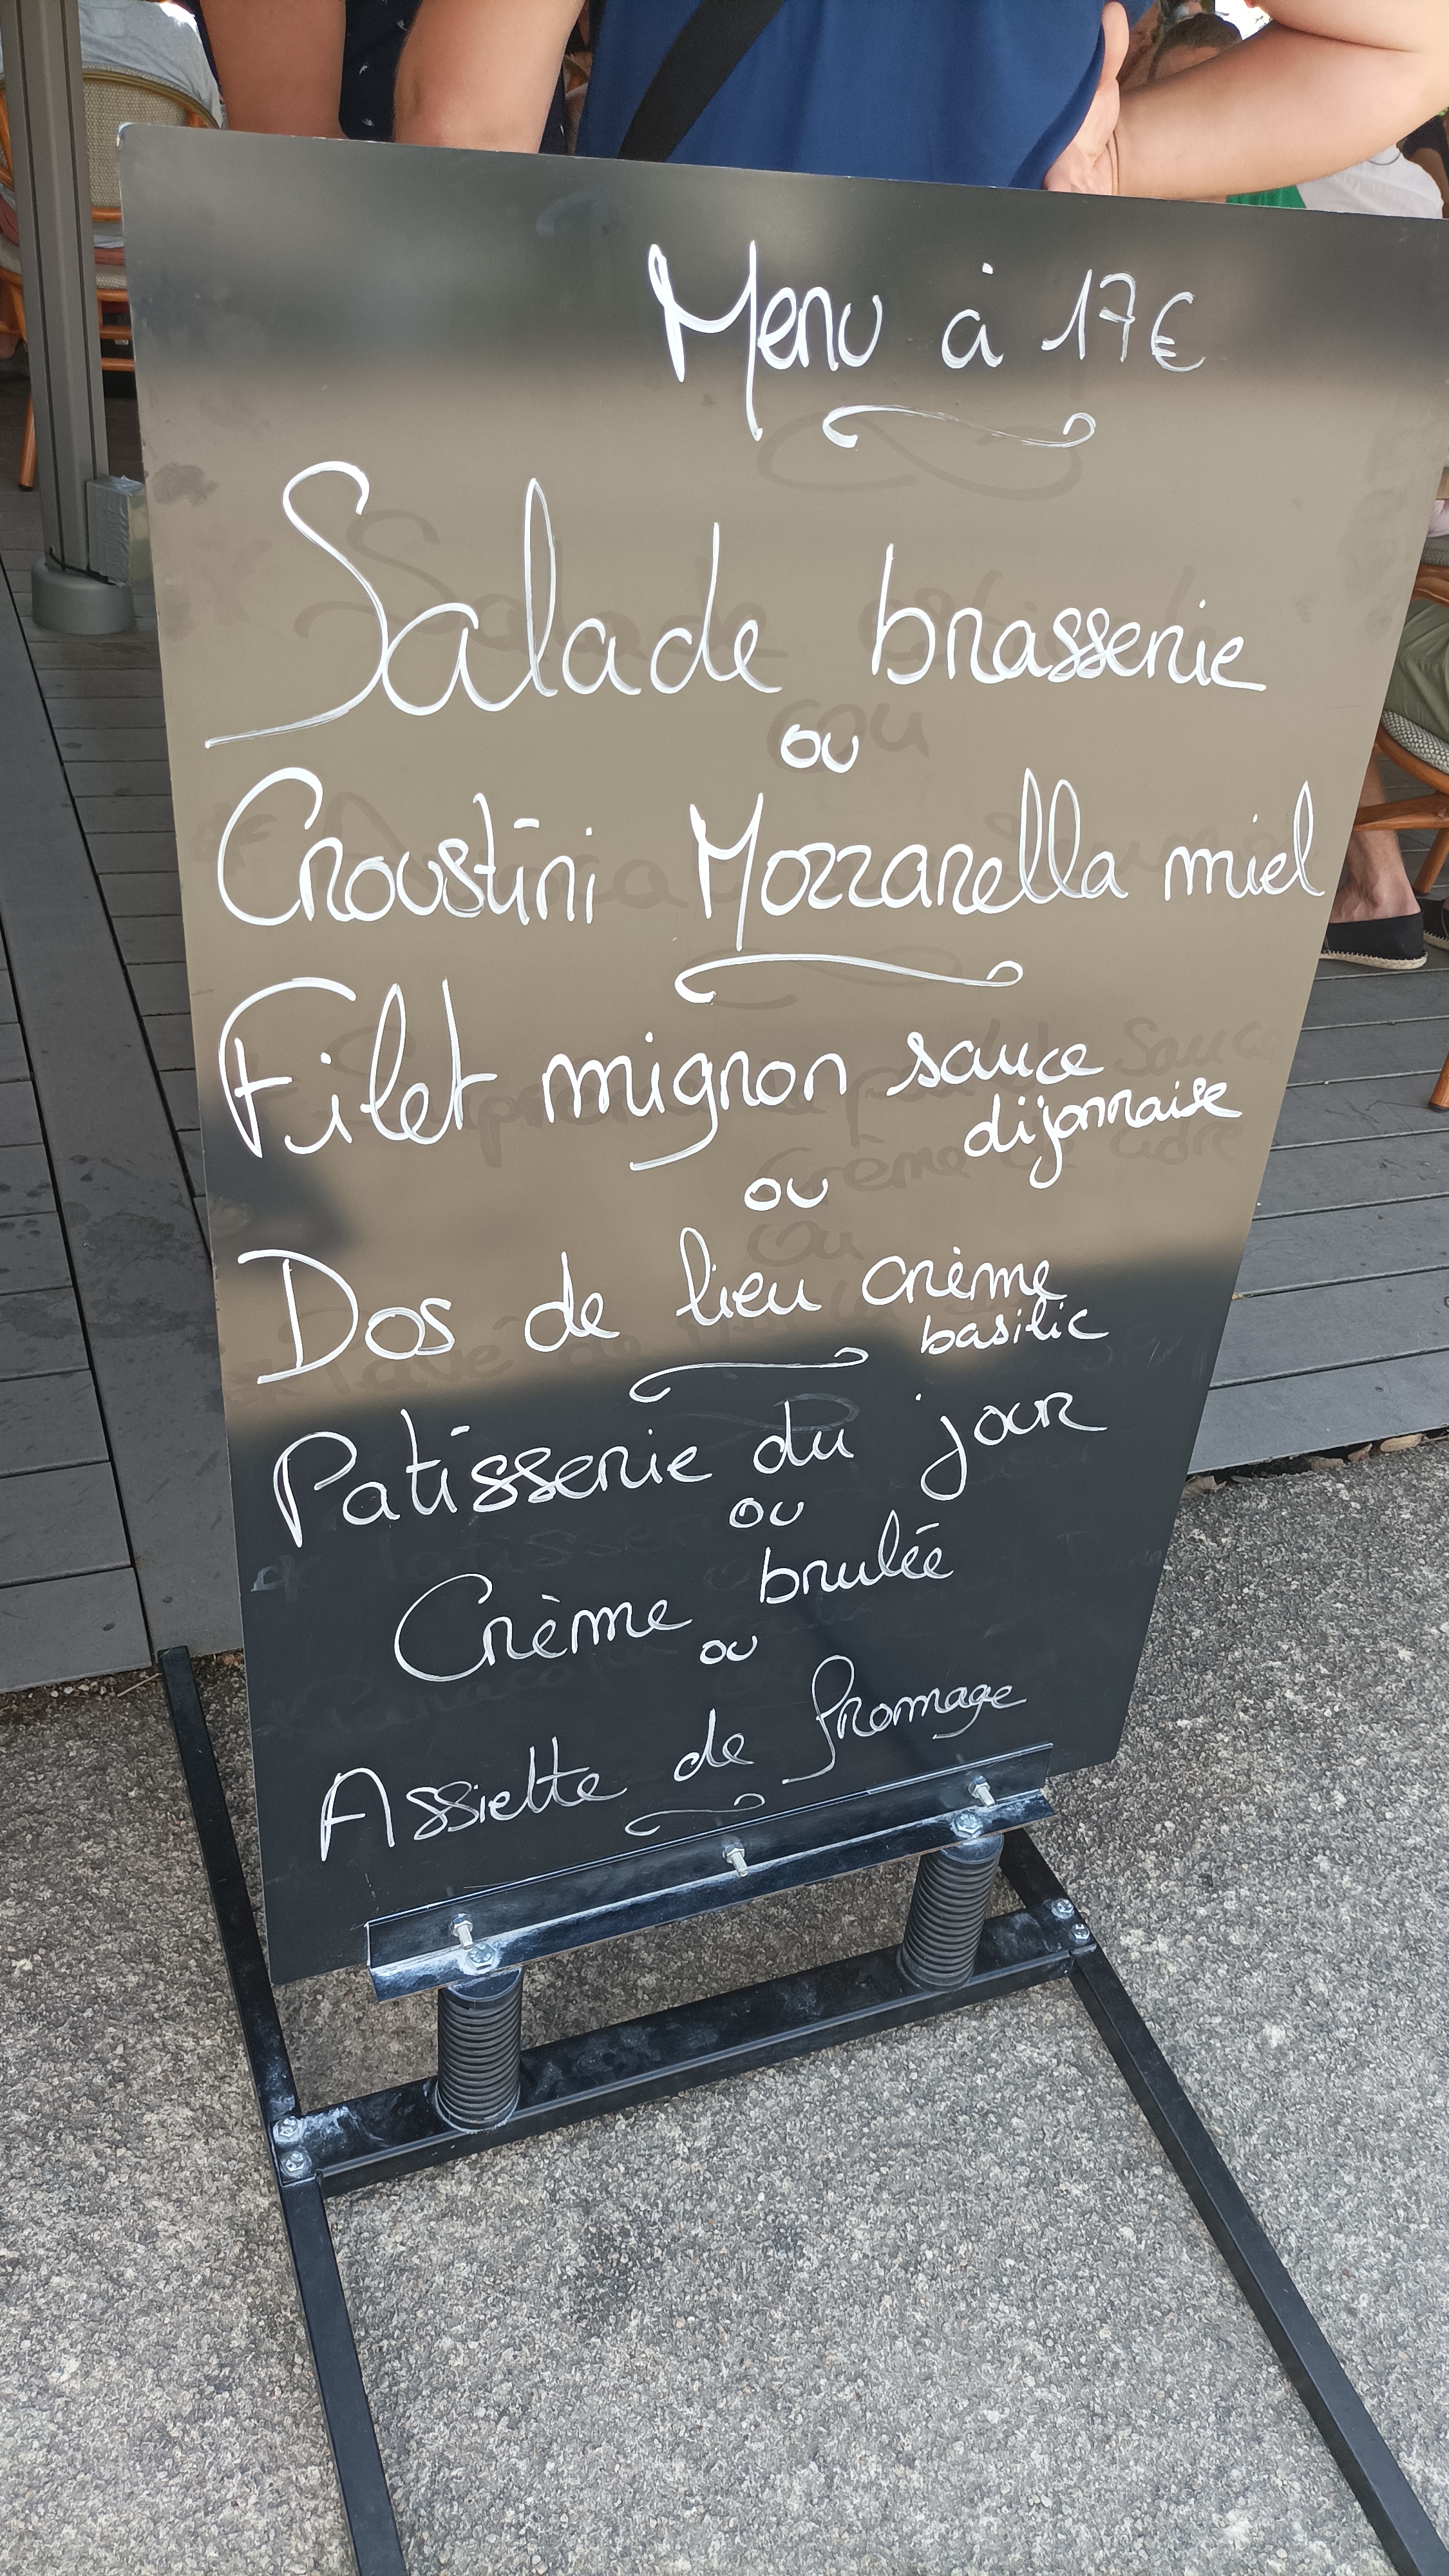 Menu à 17€
Salade brasserie
ou
Croustini Mozzarella miel
Filet mignon sauce
dijonnaise
ou
Dos de lieu crème
basilic
Patisserie du jour
ou
Crème brulée
ou
Assiette de fromage